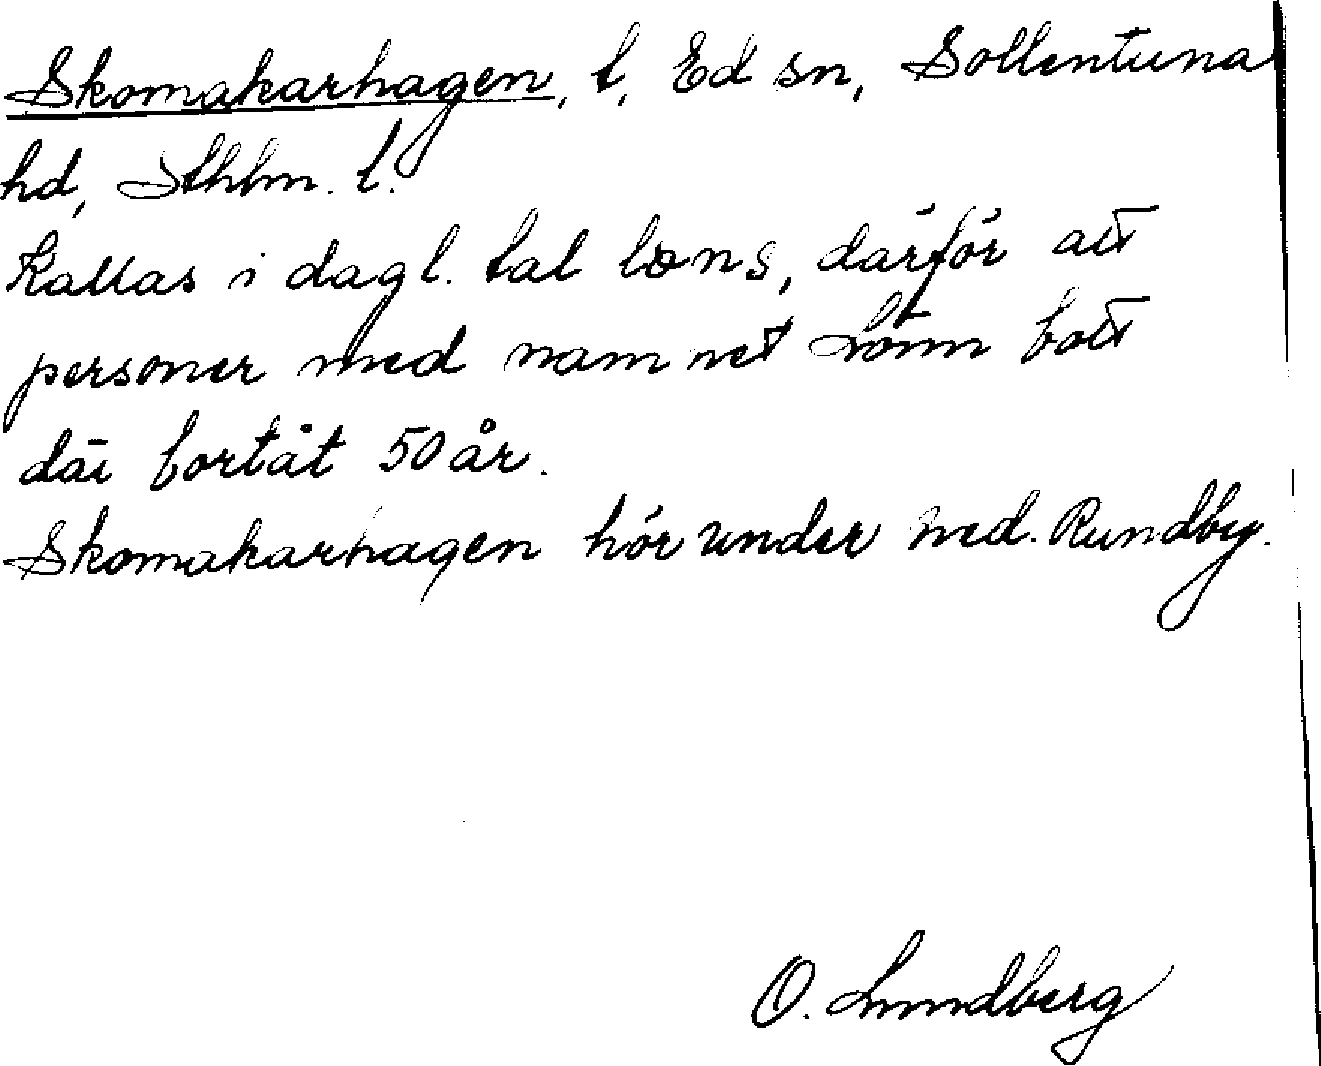 Skomakarhagen, t, Ed sn, Sollentuna
hd, Sthlm. l.
Kallas i dagl. tal lons, därför att
personer med namnet Lönn bott
där bortåt 50 år.
Skomakarhagen hör under ned. Runby.
O. Lundberg